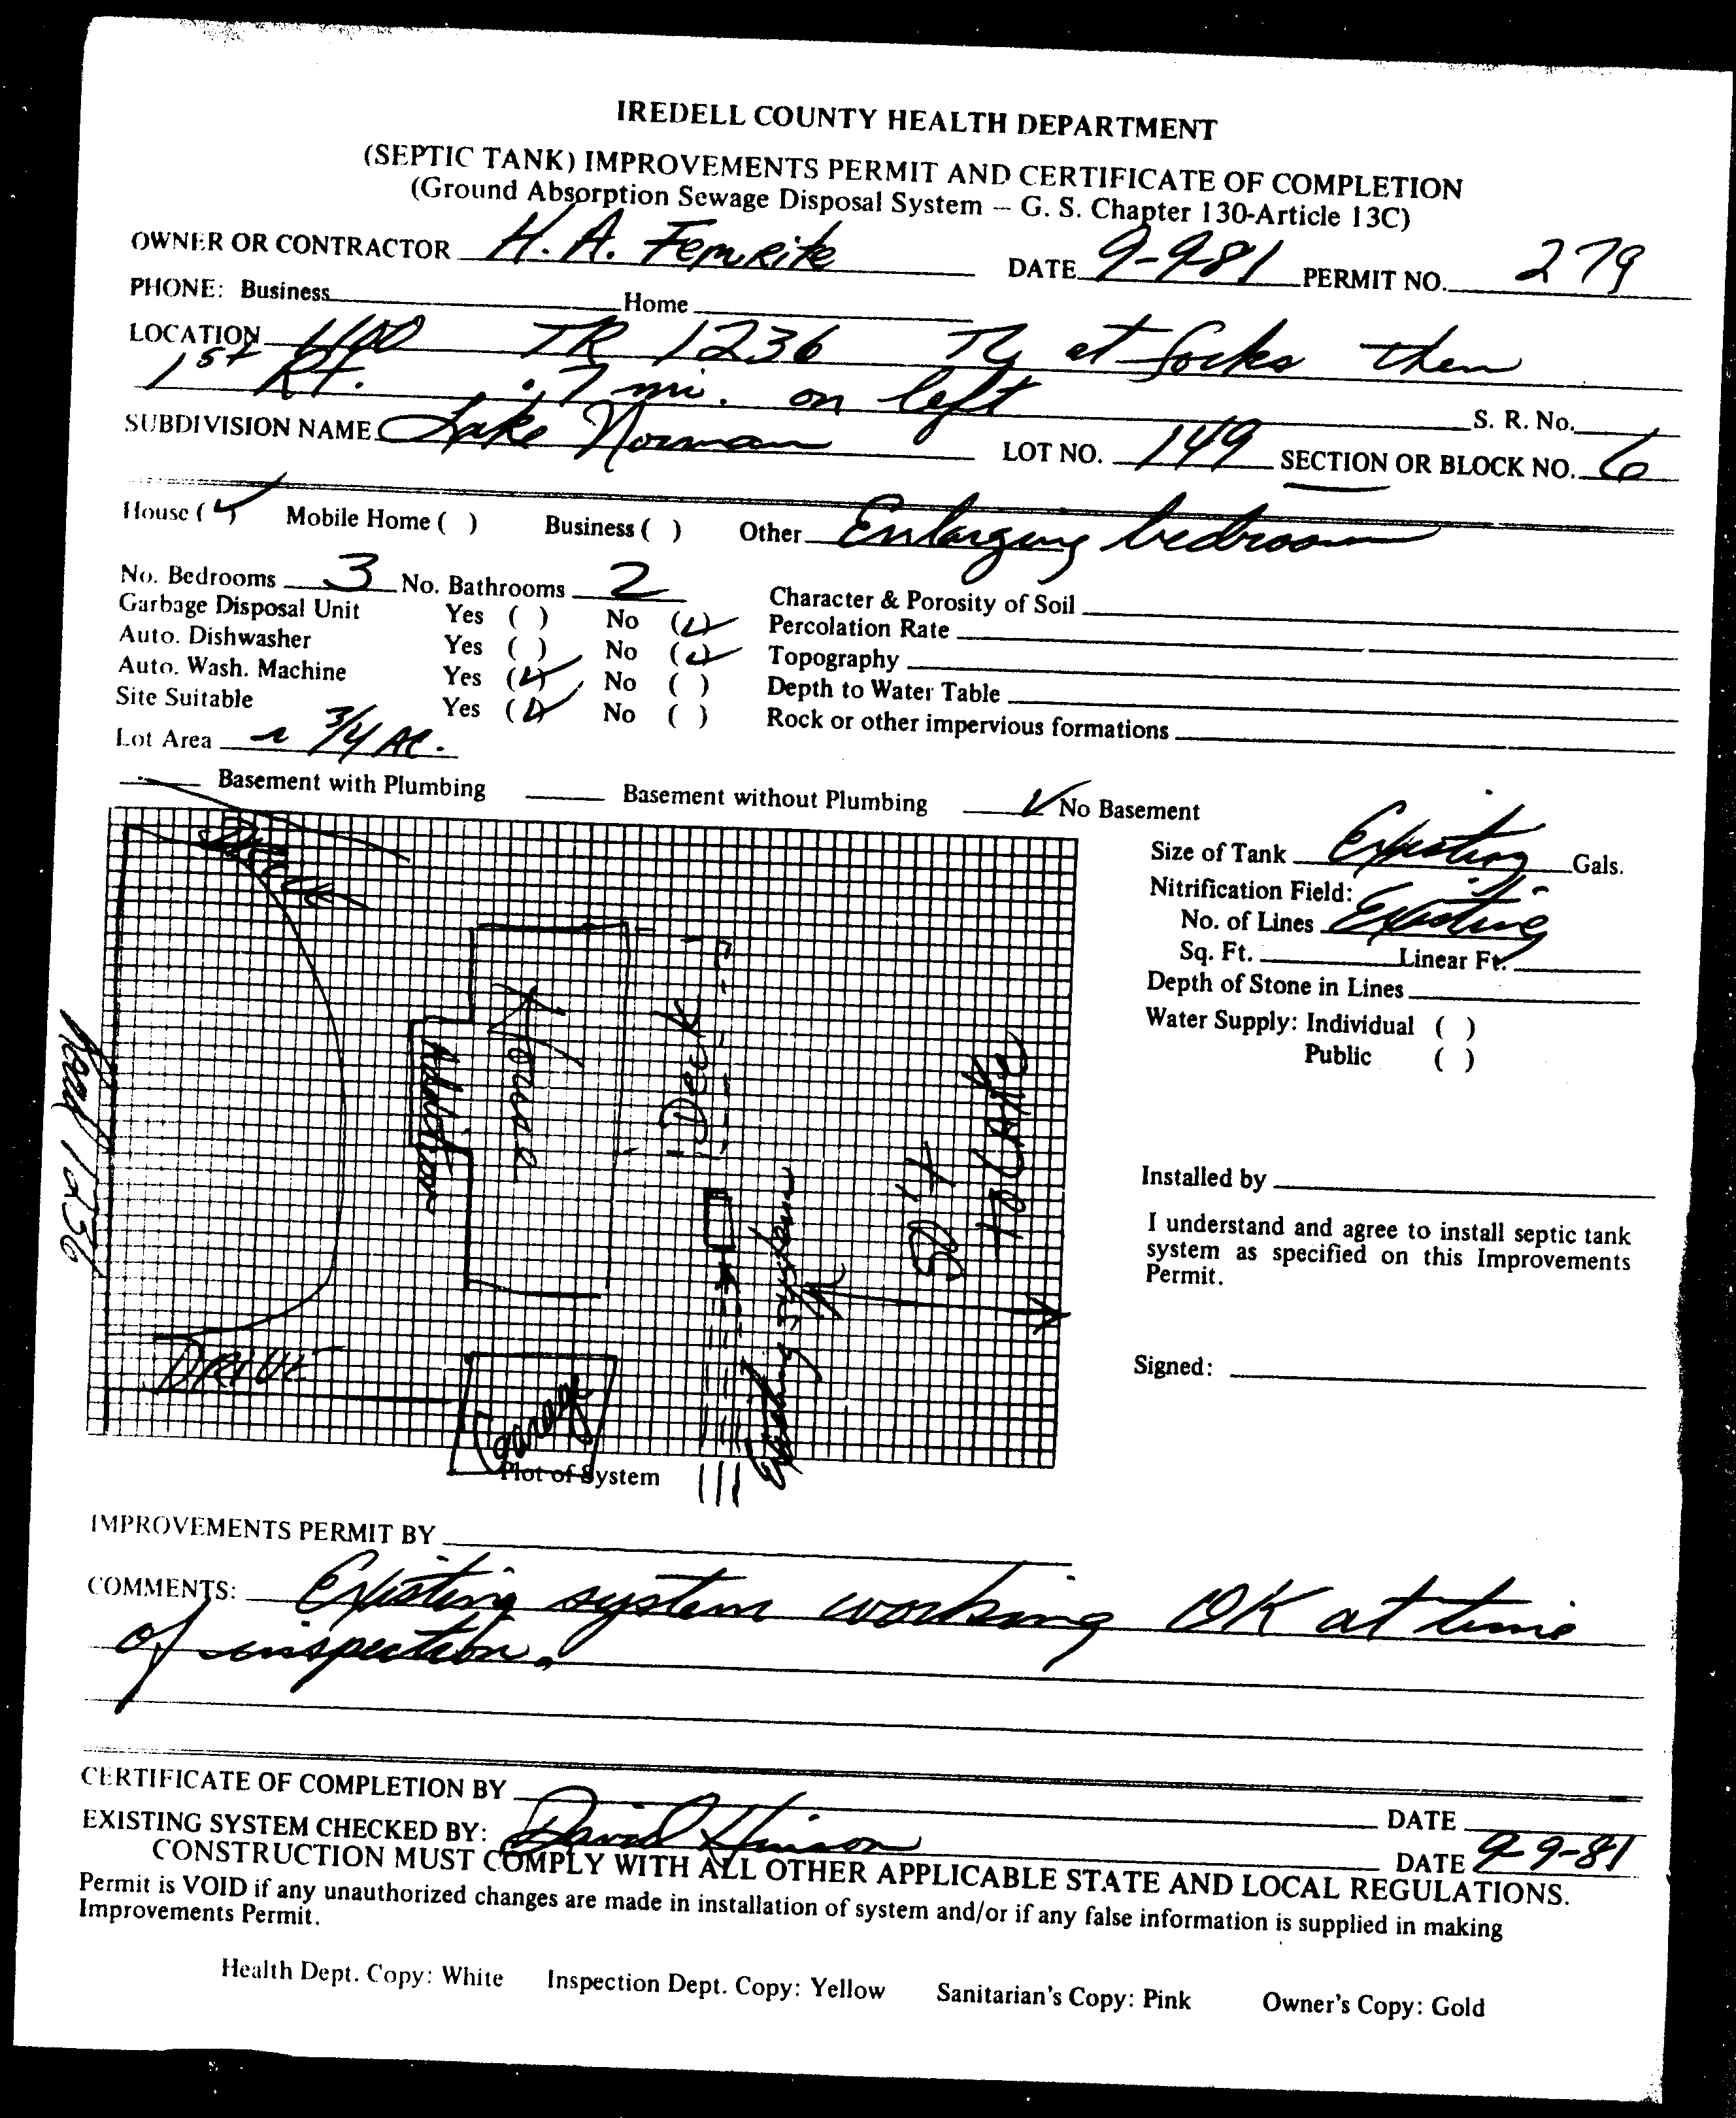 IREDELL COUNTY HEALTH DEPARTMENT
(SEPTIC TANK) IMPROVEMENTS PERMIT AND CERTIFICATE OF COMPLETION
(Ground Absorption Sewage Disposal System – G. S. Chapter 130-Article 13C)
OWNER OR CONTRACTOR H. A. Femrite DATE 9-9-81 PERMIT NO. 279
PHONE: Business Home
LOCATION TR 1236 at forks then
1st Rt. .7 mi. on left S. R. No.
SUBDIVISION NAME Lake Norman LOT NO. 149 SECTION OR BLOCK NO. 6
House (✓) Mobile Home ( ) Business ( ) Other Enlarging bedroom
No. Bedrooms 3 No. Bathrooms 2 Character & Porosity of Soil
Garbage Disposal Unit Yes ( ) No (✓) Percolation Rate
Auto. Dishwasher Yes ( ) No (✓) Topography
Auto. Wash. Machine Yes (✓) No ( ) Depth to Water Table
Site Suitable Yes (✓) No ( ) Rock or other impervious formations
Lot Area ~ 3/4 AC.
Basement with Plumbing Basement without Plumbing ✓ No Basement
Size of Tank Existing Gals.
Nitrification Field:
No. of Lines Existing
Sq. Ft. Linear Ft.
Depth of Stone in Lines
Water Supply: Individual ( )
Public ( )
Installed by
I understand and agree to install septic tank
system as specified on this Improvements
Permit.
Signed:
Road 1236
Drive
Addition
House
Deck
Existing System
Lake
DRIVE
Garage
Plot of System
IMPROVEMENTS PERMIT BY
COMMENTS: Existing system working OK at time
of inspection.
CERTIFICATE OF COMPLETION BY DATE
EXISTING SYSTEM CHECKED BY: David Hinson DATE 9-9-81
CONSTRUCTION MUST COMPLY WITH ALL OTHER APPLICABLE STATE AND LOCAL REGULATIONS.
Permit is VOID if any unauthorized changes are made in installation of system and/or if any false information is supplied in making
Improvements Permit.
Health Dept. Copy: White Inspection Dept. Copy: Yellow Sanitarian's Copy: Pink Owner's Copy: Gold